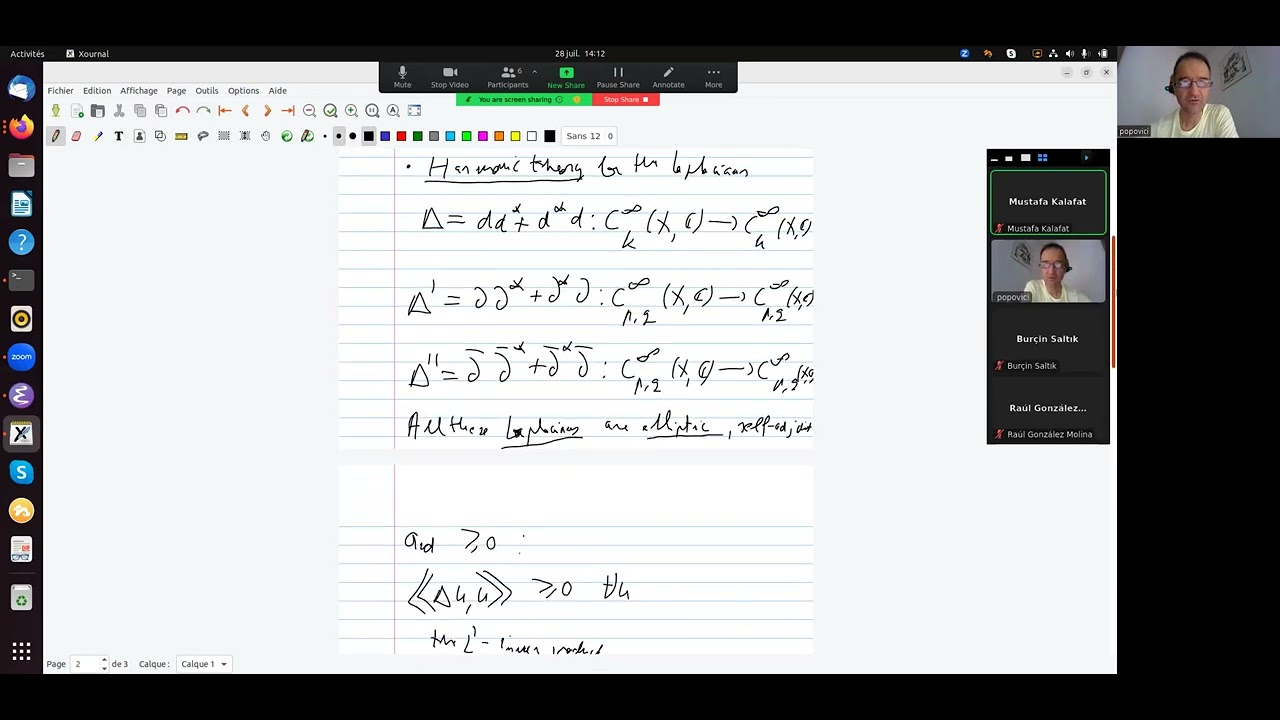 Activités
Xournal
28 juil. 14:12
Mute
Stop Video
6
Participants
New Share
Pause Share
Annotate
More
You are screen sharing
Stop Share
Fichier Edition Affichage Page Outils Options Aide
Sans 12 0
popovici
• Harmonic theory for the Laplacians
Δ = dd* + d*d : C^∞_k (X, ℂ) → C^∞_k (X, ℂ)
Δ' = ∂∂* + ∂*∂ : C^∞_{p,q} (X, ℂ) → C^∞_{p,q} (X, ℂ)
Δ'' = ∂̄ ∂̄* + ∂̄* ∂̄ : C^∞_{p,q} (X, ℂ) → C^∞_{p,q} (X, ℂ)
All these Laplacians are elliptic, self-adjoint
and ≥ 0 :
⟨⟨Δu, u⟩⟩ ≥ 0 ∀u
the L² - inner product
Mustafa Kalafat
Mustafa Kalafat
popovici
Burçin Saltık
Burçin Saltık
Raúl González...
Raúl González Molina
zoom
Page 2 de 3 Calque : Calque 1